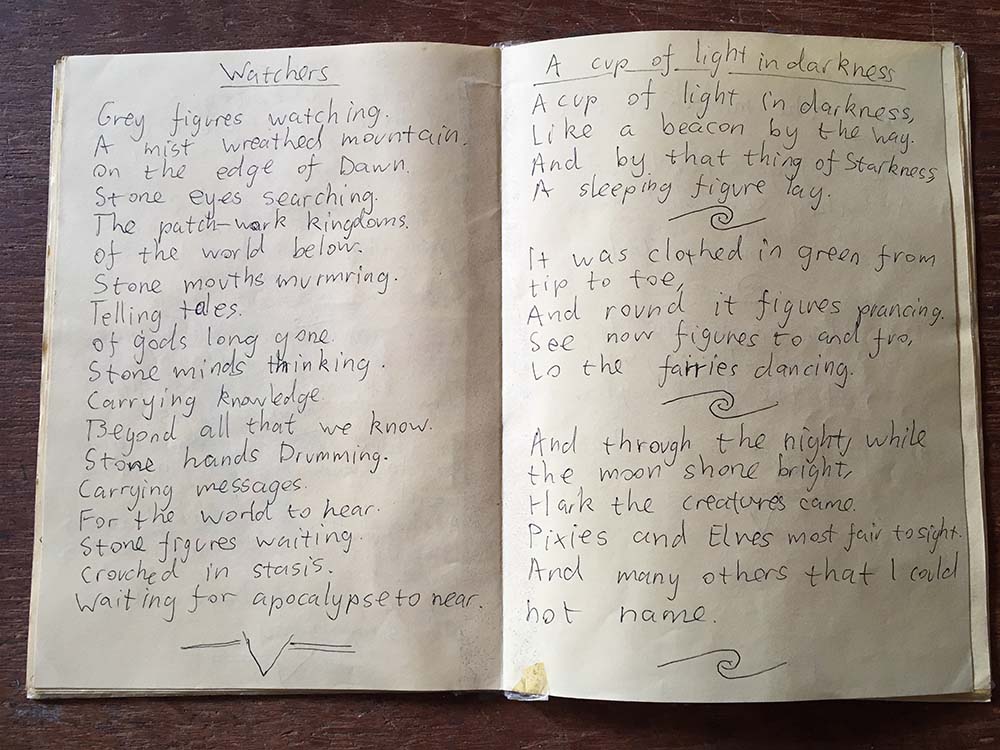 Watchers
Grey figures watching.
A mist wreathed mountain.
on the edge of Dawn.
Stone eyes searching.
The patch-work kingdoms.
of the world below.
Stone mouths murmring.
Telling tales.
of gods long gone.
Stone minds thinking.
Carrying knowledge.
Beyond all that we know.
Stone hands Drumming.
Carrying messages.
For the world to hear.
Stone figures waiting.
Crouched in stasis.
Waiting for apocalypse to near.
A cup of light in darkness
A cup of light in darkness,
Like a beacon by the way.
And by that thing of Starkness
A sleeping figure lay.
It was clothed in green from
tip to toe,
And round it figures prancing.
See now figures to and fro,
Lo the fairries dancing.
And through the night, while
the moon shone bright,
Hark the creatures came.
Pixies and Elves most fair to sight.
And many others that I could
not name.